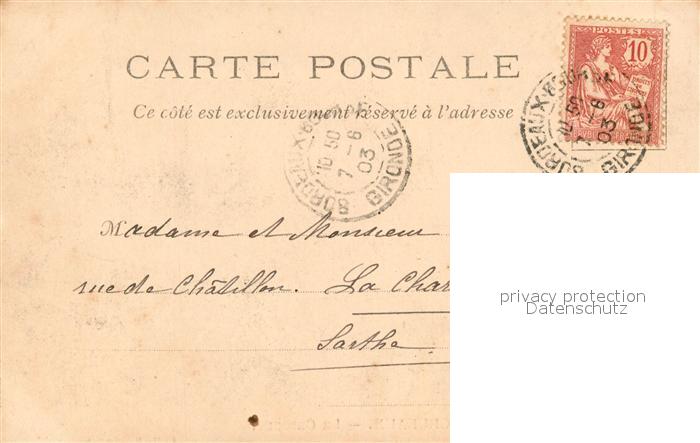 CARTE POSTALE
POSTES
10
Ce côté est exclusivement réservé à l'adresse
BORDEAUX
10 50
7 - 8
03
GIRONDE
BORDEAUX
10 50
7 - 8
03
GIRONDE
Madame et Monsieur
rue de Châtillon. La Char
Sarthe
privacy protection
Datenschutz